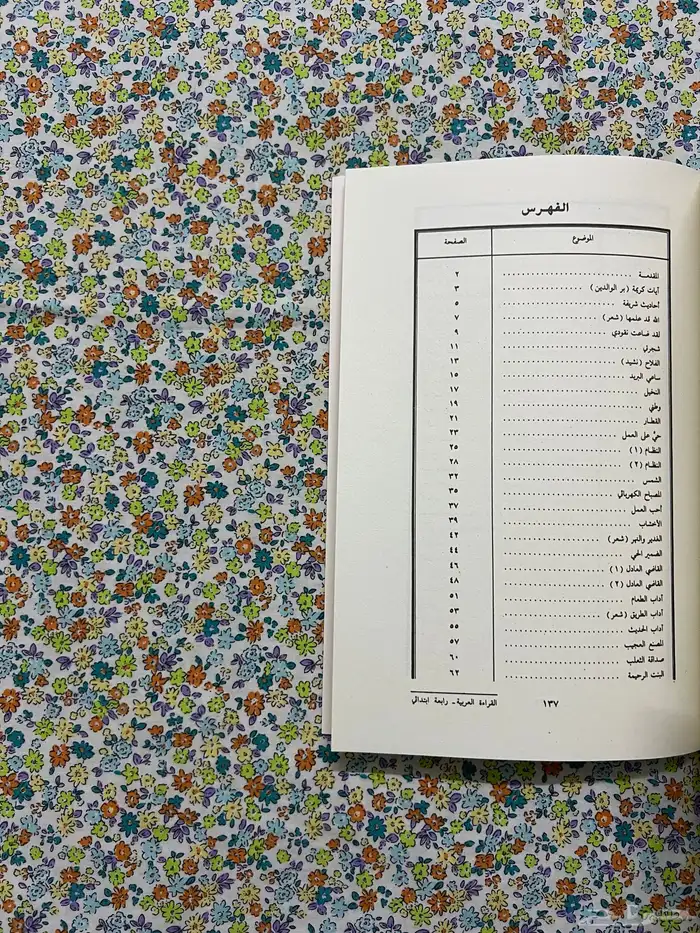 الفهرس
الموضوع الصفحة
المقدمة ٢
آيات كريمة (بر الوالدين) ٣
أحاديث شريفة ٥
الله قد علمها (شعر) ٧
لقد ضاعت نقودي ٩
شجرتي ١١
الفلاح (نشيد) ١٣
ساعي البريد ١٥
النخيل ١٧
وطني ١٩
القطار ٢١
حيّ على العمل ٢٣
النظام (١) ٢٥
النظام (٢) ٢٨
الشمس ٣٢
المصباح الكهربائي ٣٥
أحب العمل ٣٧
الأخشاب ٣٩
الغدير والنهر (شعر) ٤٢
الضمير الحي ٤٤
القاضي العادل (١) ٤٦
القاضي العادل (٢) ٤٨
آداب الطعام ٥١
آداب الطريق (شعر) ٥٣
آداب الحديث ٥٥
المصنع العجيب ٥٧
صداقة الثعلب ٦٠
البنت الرحيمة ٦٢
١٣٧ القراءة العربية - رابعة ابتدائي